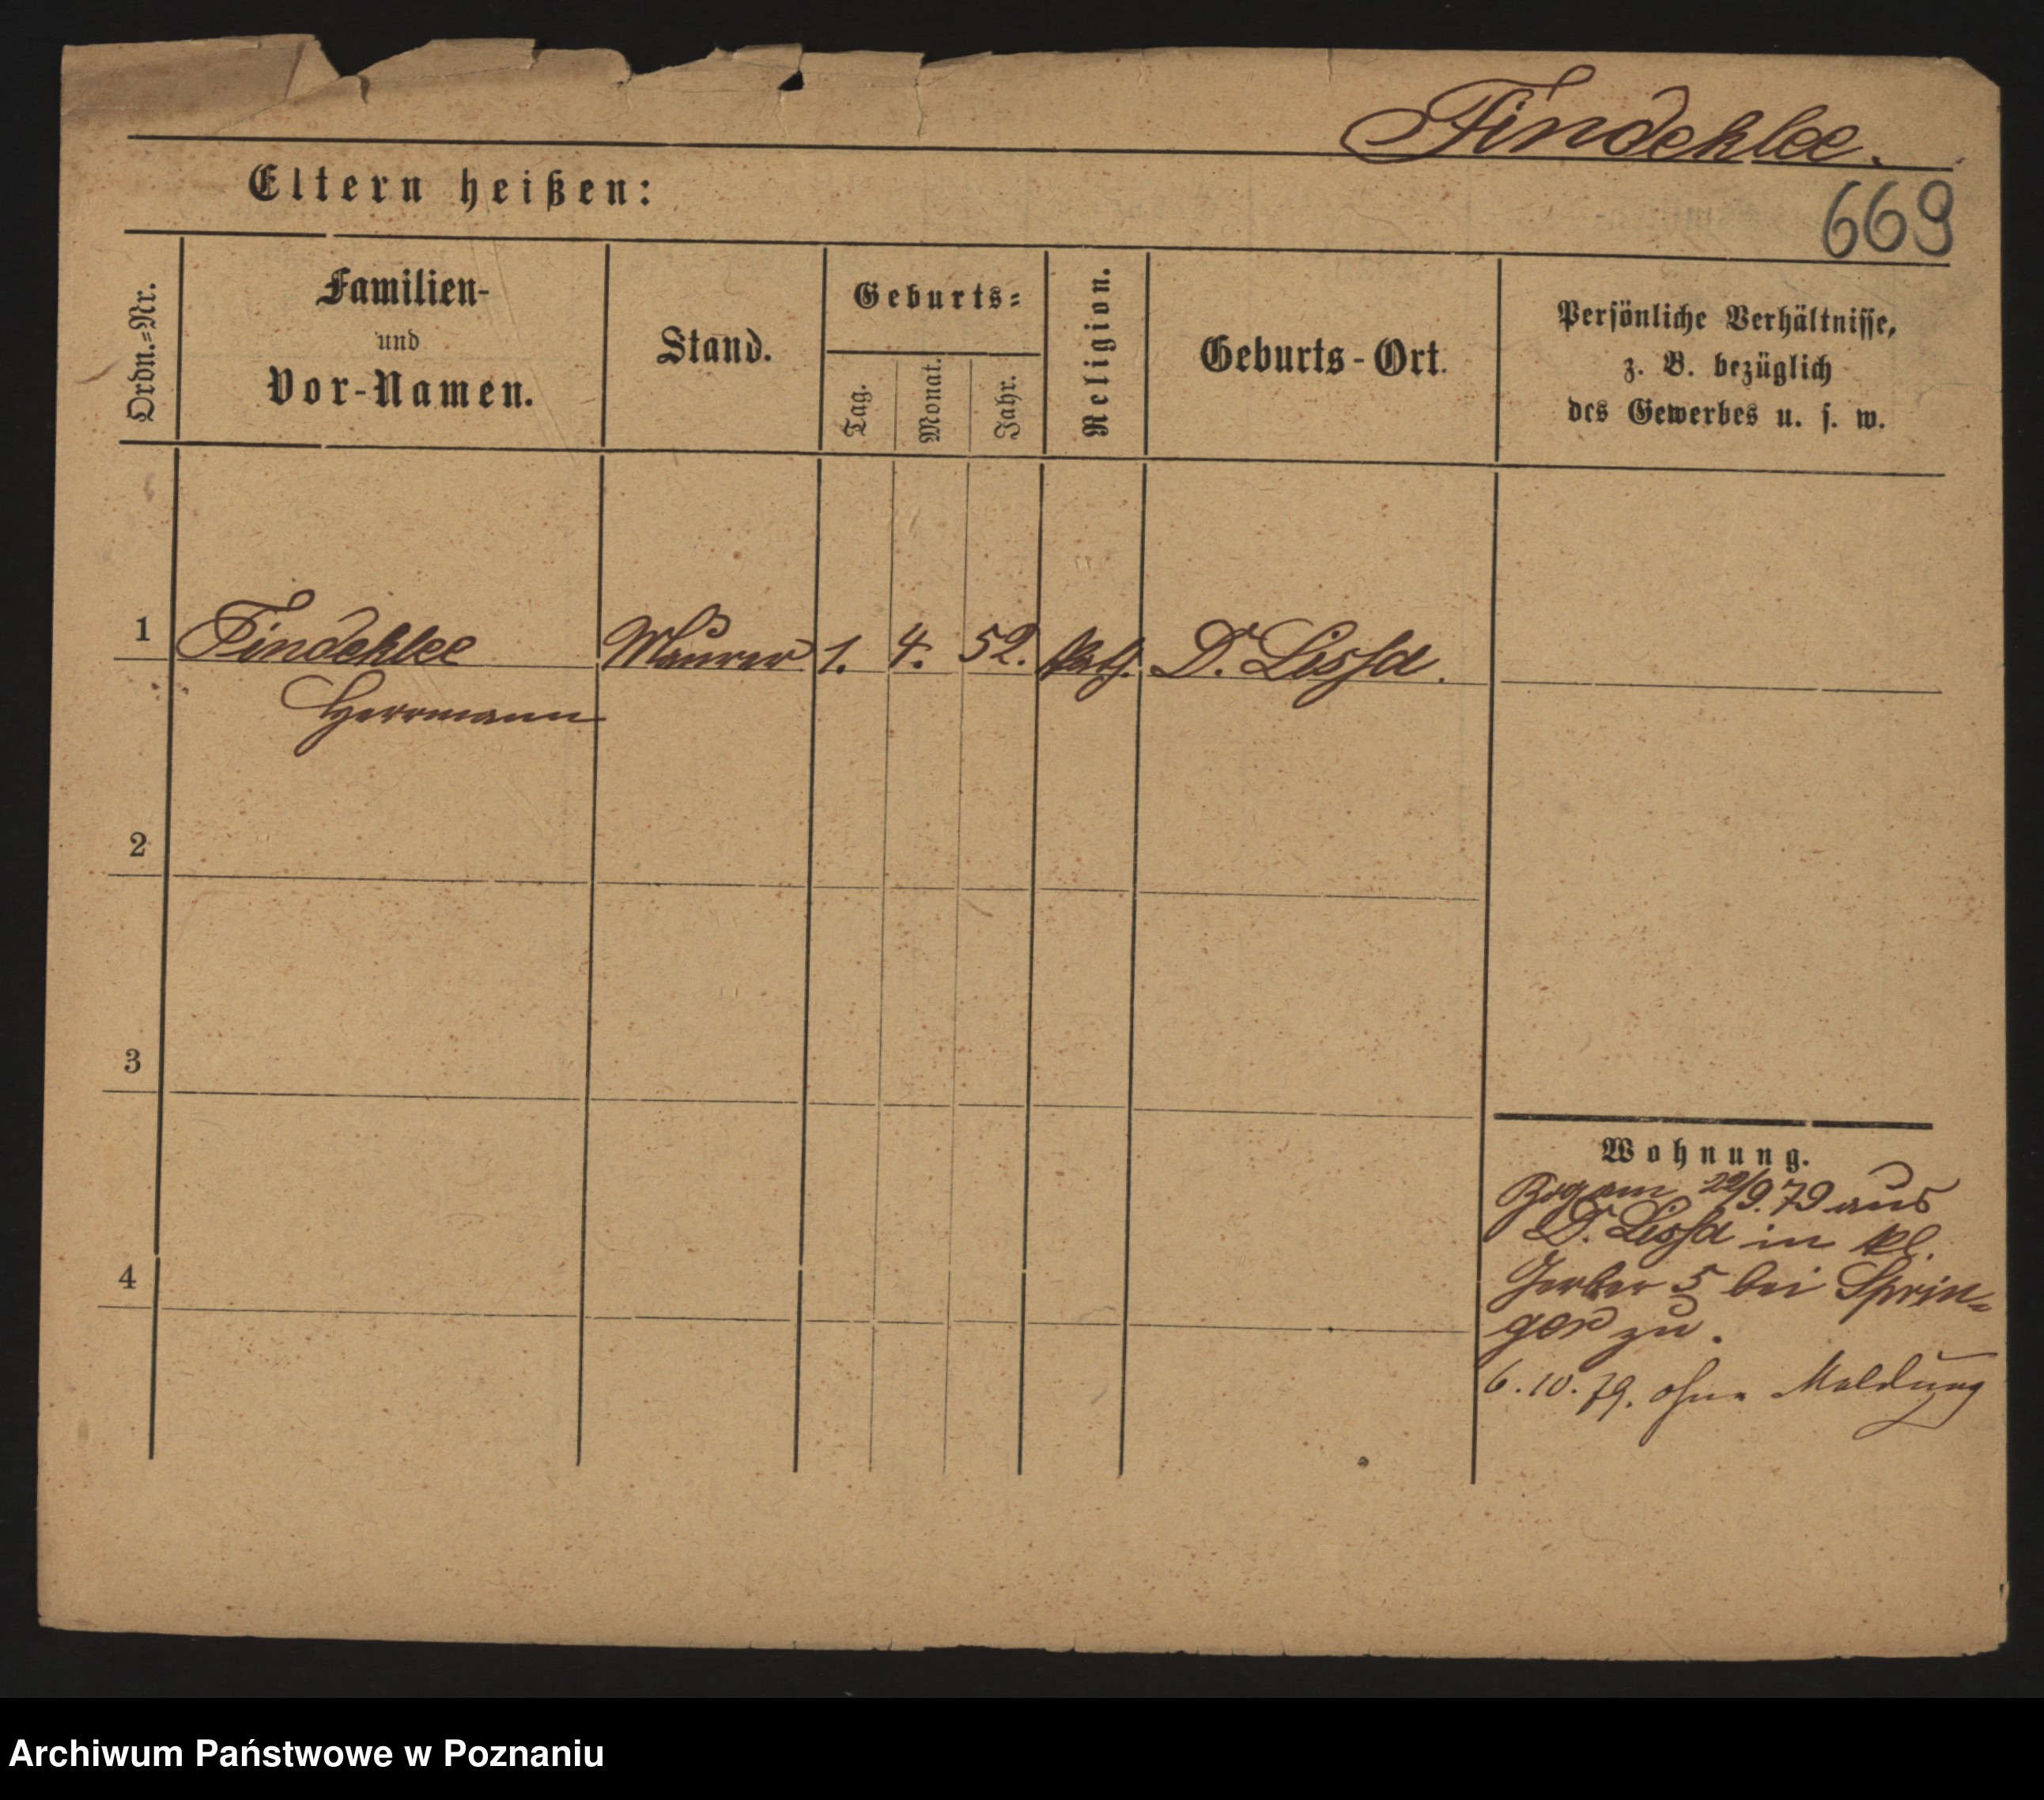 Findeklee.
Eltern heißen:
669
Ordn.-Nr.
Familien-
und
Vor-Namen.
Stand.
Geburts-
Tag.
Monat.
Jahr.
Religion.
Geburts-Ort.
Persönliche Verhältnisse,
z. B. bezüglich
des Gewerbes u. s. w.
1 Findeklee Maurer 1. 4. 52. kath. D. Lissa.
Herrmann
2
3
4
Wohnung.
Zog am 22/9. 79 aus
D. Lissa in kl.
Gerber 5 bei Sprin-
ger zu.
6. 10. 79. ohne Meldung
Archiwum Państwowe w Poznaniu